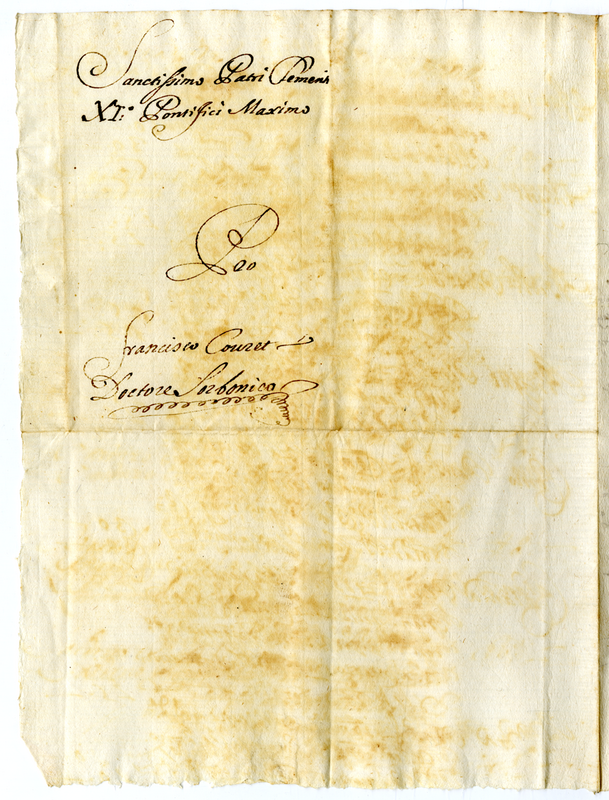 Sanctissimo Patri Clementi
XI:º Pontifici Maximo
Pro
Francisco Couret
Doctore Sorbonico